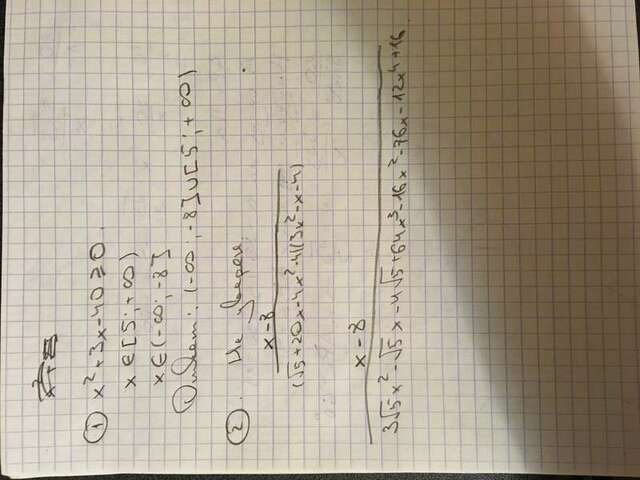 ① x²+3x-40≥0.
x∈[5;+∞)
x∈(-∞;-8]
Ответ: (-∞;-8]∪[5;+∞)
② Не уверен.
x-8
(√5+20x-4x²-4)(3x²-x-4)
x-8
3√5x²-√5x-4√5+64x³-16x²-76x-12x⁴+16.